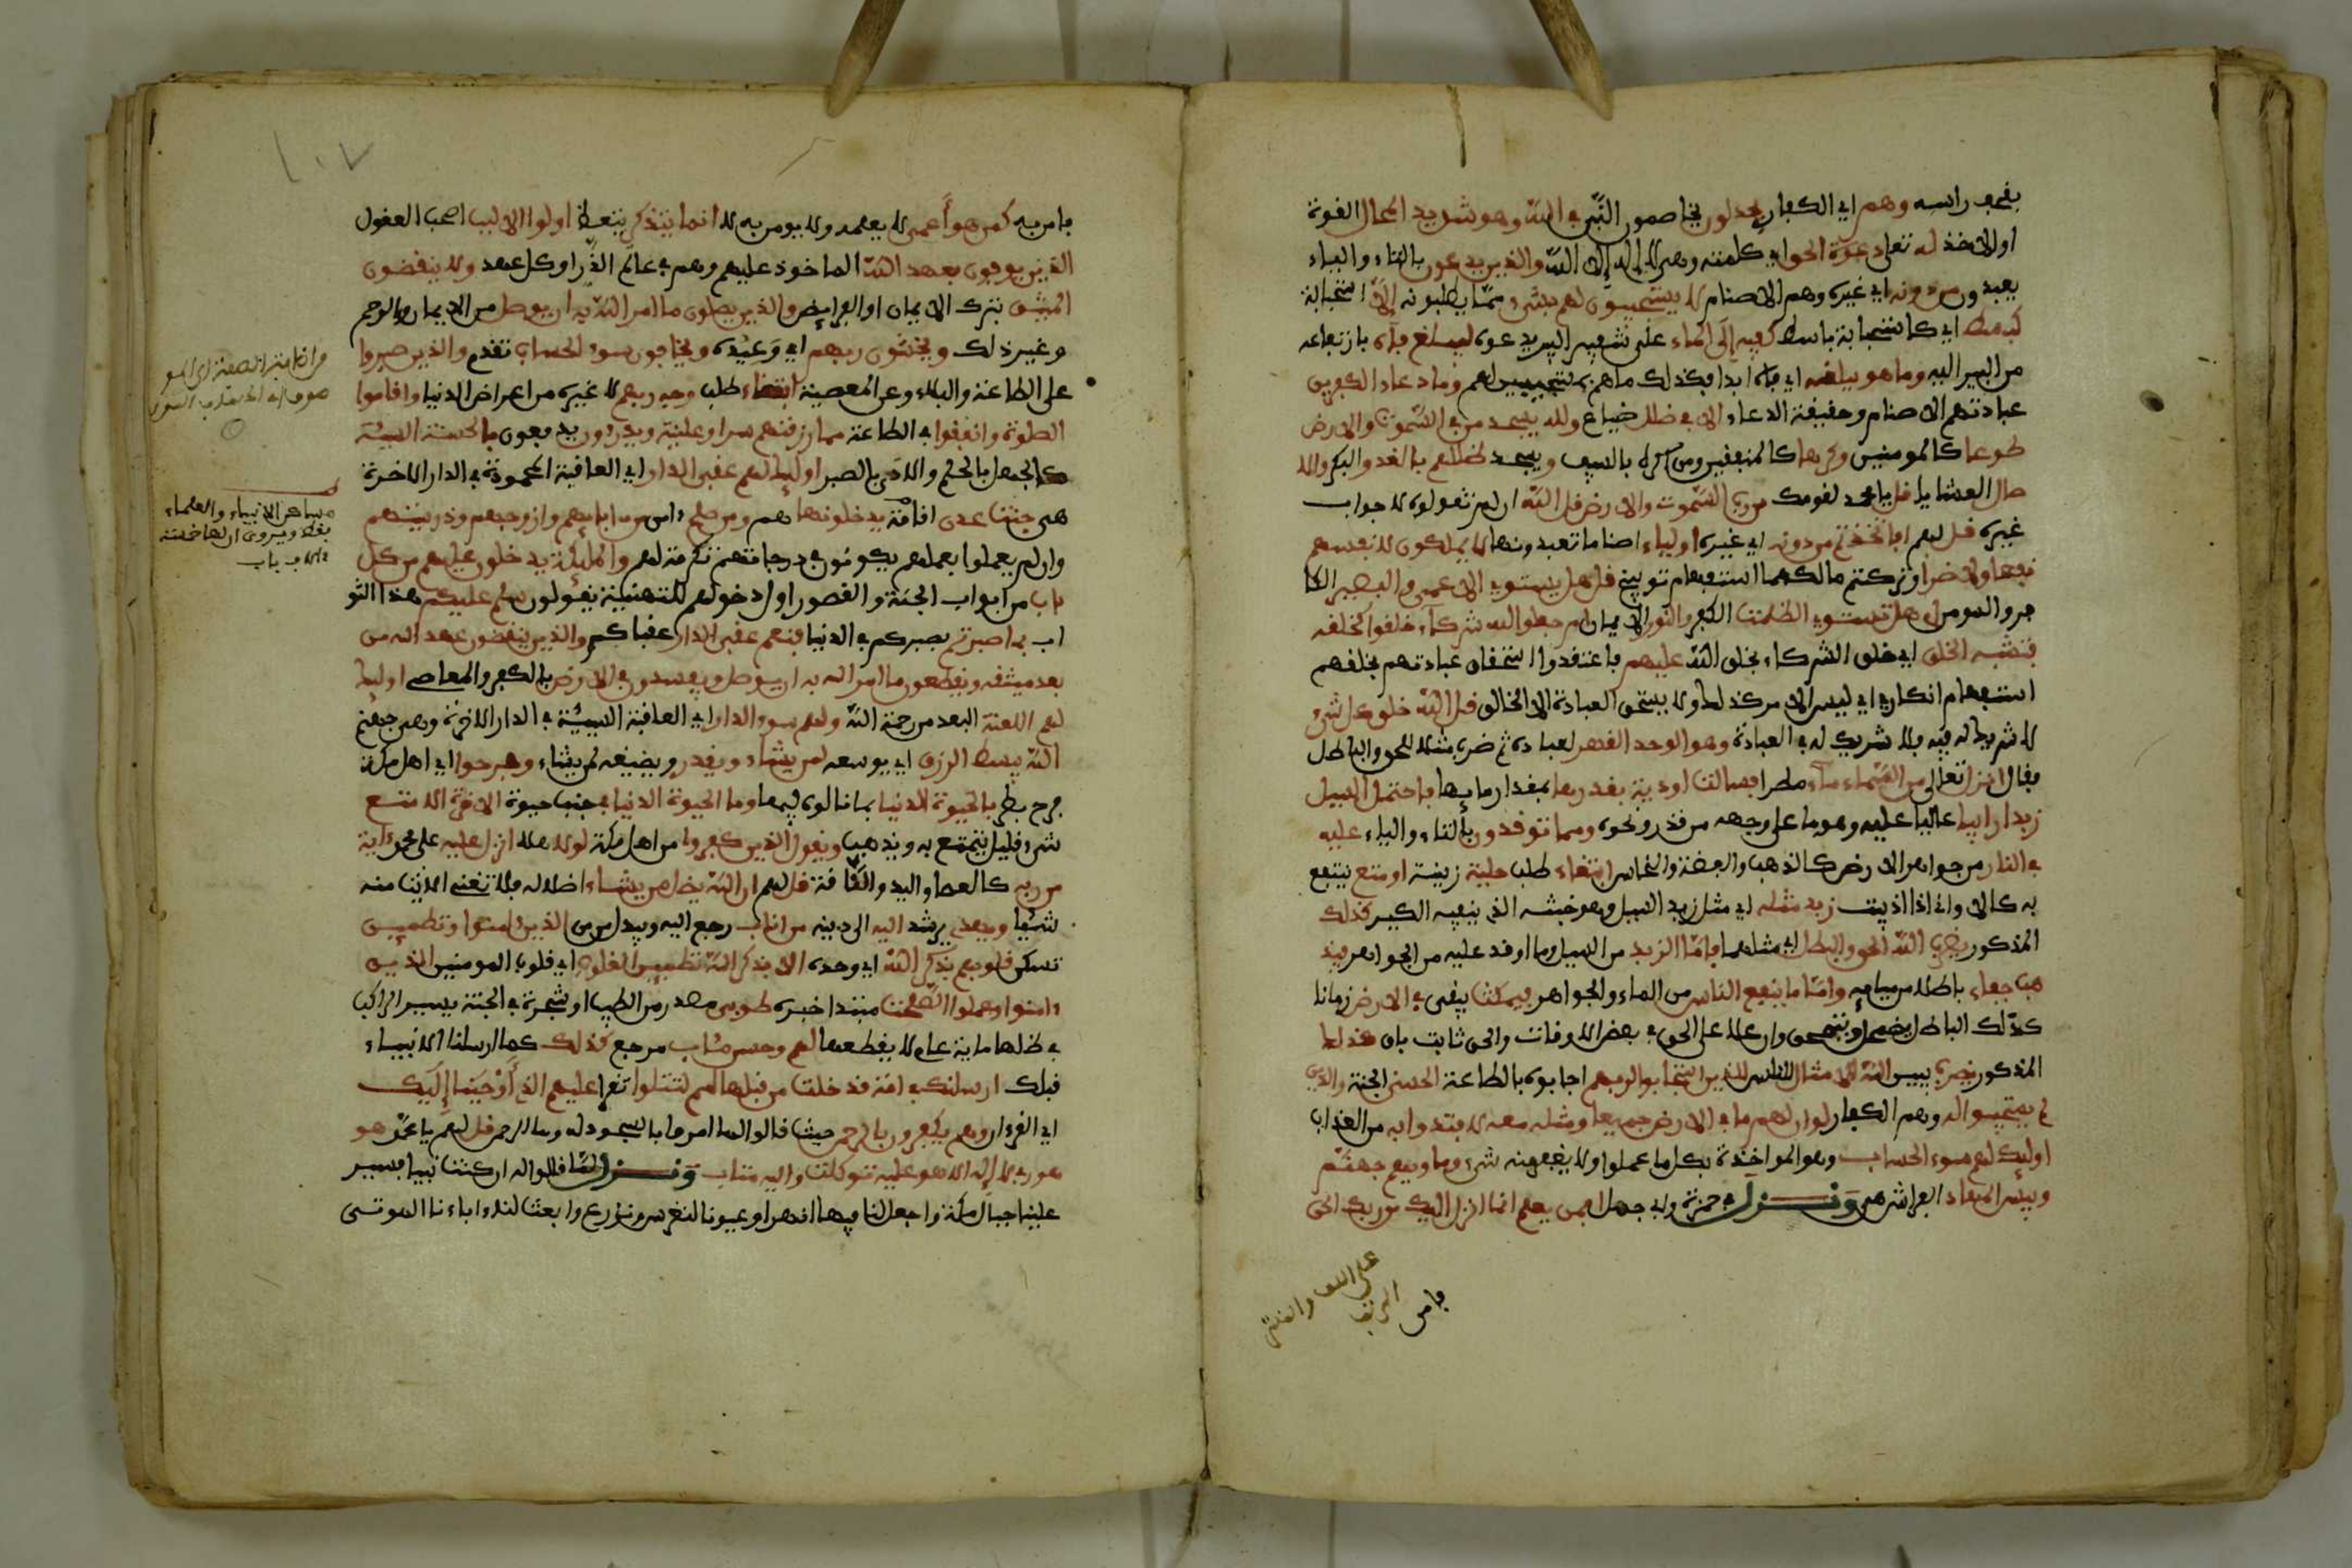 بقحف راسه وهم اي الكفار يجدلون يخاصمون النّبي في اللّه وهو شديد المحال القوة
او الاخذ له تعلى دعوة الحق اي كلمته وهي لا اله الا اللّه والذين يدعون بالتاء والياء
يعبدون من دونه اي غيره وهم الاصنام لا يستجيبون لهم بشيء ممّا يطلبونه إلاّ استجابة
كبسط اي كاستجابة باسط كفيه إلى الماء على شفير البير يدعوه ليبلغ فاه بارتفاعه
من البير اليه وما هو ببلغه اي فاه ابدا فكذلك ما هم بمستجيبين لهم وما دعاء الكفرين
عبادتهم الاصنام وحقيقة الدعاء الا في ضلل ضياع ولله يسجد من في السّموت والارض
طوعا كالمومنين وكرها كالمنفقين ومن اكره بالسيف ويسجد ظللهم بالغدو البكر والا
صال العشايا قل يا محمد لقومك من رب السّموت والارض قل اللّه ان لم يقولوه لا جواب
غيره قل لهم افاتخذتم من دونه اي غيره اولياء اصناما تعبدونها لا يملكون لانفسهم
نفعا ولا ضرا وتركتم مالكهما استفهام توبيخ قل هل يستوي الاعمى والبصير الكا
فر والمومن ام هل تستوي الظلمت الكفر والنور الايمان ام جعلوا لله شركاء خلقوا كخلقه
فتشبه الخلق اي خلق الشركاء بخلق اللّه عليهم فاعتقدوا استحقاق عبادتهم بخلقهم
استفهام انكار اي ليس الامر كذلك ولا يستحق العبادة الا الخالق قل اللّه خلق كل شيء
لا شريك له فيه فلا شريك له في العبادة وهو الوحد القهر لعباده ثم ضرب مثلا للحق والباطل
فقال انزل تعالى من السّماء ماء مطرا فسالت اودية بقدرها بمقدار مايها فاحتمل السيل
زبدا رابيا عاليا عليه وهو ما على وجهه من قذر ونحوه ومما توقدون بالتاء والياء عليه
في النار من جواهر الارض كالذهب والفضة والنحاس ابتغاء طلب حلية زينة او متع ينتفع
به كالاواني اذا اذيبت زبد مثله اي مثل زبد السيل وهو خبثه الذي ينفيه الكير كذلك
المذكور يضرب اللّه الحق والبطل اي مثلهما فامّا الزبد من السيل وما اوقد عليه من الجواهر فيذ
هب جفاء باطلا مرميا به وامّا ما ينفع الناس من الماء والجواهر فيمكث يبقى في الارض زمانا
كذلك الباطل يضمحل وينمحق وان علا على الحق في بعض الاوقات والحق ثابت باق كذلك
المذكور يضرب يبين اللّه الامثال للناس للذين استجابوا لربهم اجابوه بالطاعة الحسنى الجنة والذين
لم يستجيبوا له وهم الكفار لو ان لهم ما في الارض جميعا ومثله معه لافتدوا به من العذاب
اوليك لهم سوء الحساب وهو المواخذة بكل ما عملوا ولا يغفر منه شيء وماويهم جهنّم
وبيس المهاد الفراش هي ونزل في حمزة وابي جهل افمن يعلم انما انزل اليك من ربك الحق
فامن
فامن به كمن هو أعمى لا يعلمه ولا يومن به لا انما يتذكر يتعظ اولوا الالبب اصحب العقول
الذين يوفون بعهد اللّه الماخوذ عليهم وهم في عالم الذّر او كل عهد ولا ينقضون
الميثق بترك الايمان او الفرايض والذين يصلون ما امر اللّه به ان يوصل من الايمان والرحم
وغير ذلك ويخشون ربهم اي وعيده ويخافون سوء الحساب تقدم والذين صبروا
على الطاعة والبلاء وعن المعصية ابتغاء طلب وجه ربهم لا غيره من اعراض الدنيا واقاموا
الصلوة وانفقوا في الطاعة مما رزقنهم سرا وعلنية ويدرءون يدفعون بالحسنة السيئة
كالجهل بالحلم والاذى بالصبر اوليك لهم عقبى الدار اي العاقبة المحمودة في الدار الاخرة
هي جنت عدن اقامة يدخلونها هم ومن صلح ءامن من ابايهم وازوجهم وذريتهم
وان لم يعملوا بعملهم يكونون في درجاتهم تكرمة لهم والمليكة يدخلون عليهم من كل
باب من ابواب الجنة والقصور اول دخولهم للتهنية يقولون سلم عليكم هذا الثو
اب بما صبرتم بصبركم في الدنيا فنعم عقبى الدار عقباكم والذين ينقضون عهد الله من
بعد ميثقه ويقطعون ما امر الله به ان يوصل ويفسدون في الارض بالكفر والمعاصي اوليك
لهم اللعنة البعد من رحمة اللّه ولهم سوء الدار اي العاقبة السيئة في الدار الاخرة وهي جهنم
اللّه يبسط الرزق اي يوسعه لمن يشاء ويقدر ويضيقه لمن يشاء وفرحوا اي اهل مكة
فرح بطر بالحيوة الدنيا بما نالوه فيها وما الحيوة الدنيا في جنب حيوة الاخرة الا متع
شيء قليل يتمتع به ويذهب ويقول الذين كفروا من اهل مكة لولا هلا انزل عليه على محمد ءاية
من ربه كالعصا واليد والنّاقة قل لهم ان اللّه يضل من يشاء اضلاله فلا تغني الايت منه
شيئا ويهدي يرشد اليه الى دينه من اناب رجع اليه ويبدل من من الذين ءامنوا وتطمين
تسكن قلوبهم بذكر اللّه اي وحده الا بذكر اللّه تطمين القلوب اي قلوب المومنين الذين
ءامنوا وعملوا الصّلحت مبتدا خبره طوبى مصدر من الطيب او شجرة في الجنة يسير الراكب
في ظلها ماية عام لا يقطعها لهم وحسن مئاب مرجع كذلك كما ارسلنا الانبياء
قبلك ارسلنك في امة قد خلت من قبلها امم لتتلوا تقرا عليهم الذي أَوْحَيْنا إِلَيك
اي القرءان وهم يكفرون بالرحمن حيث قالوا لما امروا بالسجود له وما الرحمن قل لهم يا محمّد هو
هو ربي لا إله الا هو عليه توكلت واليه متاب ونزل لمّا قالوا له ان كنت نبيا فسير
علينا جبال مكة واجعل لنا فيها انهرا وعيونا لنغرس ونزرع وابعث لنا ءاباءنا الموتى